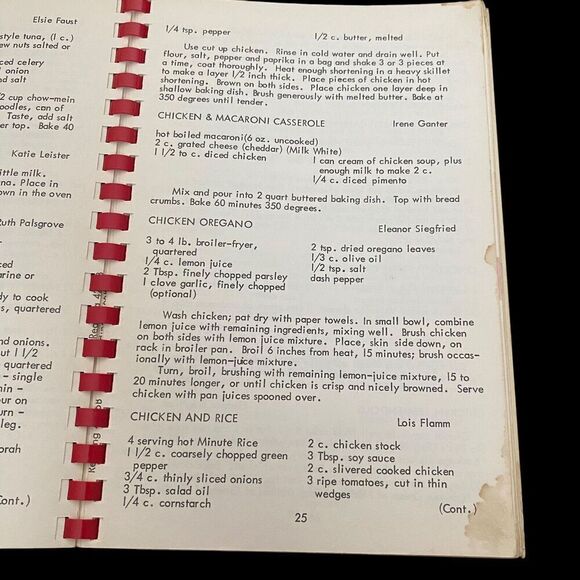 Elsie Faust
style tuna, (1 c.)
ew nuts salted or
ced celery
l onion
nd salt
/2 cup chow-mein
oodles, can of
Taste, add salt
er top. Bake 40
Katie Leister
ittle milk.
na. Place in
own in the oven
Ruth Palsgrove
arine or
dy to cook
s, quartered
nd onions.
ut 1 1/2
quartered
- single
min -
our on
urn -
leg.
orah
Cont.)
1/4 tsp. pepper
1/2 c. butter, melted
Use cut up chicken. Rinse in cold water and drain well. Put
flour, salt, pepper and paprika in a bag and shake 3 or 3 pieces at
a time, coat thoroughly. Heat enough shortening in a heavy skillet
to make a layer 1/2 inch thick. Place pieces of chicken in hot
shortening. Brown on both sides. Place chicken one layer deep in
shallow baking dish. Brush generously with melted butter. Bake at
350 degrees until tender.
CHICKEN & MACARONI CASSEROLE
Irene Ganter
hot boiled macaroni(6 oz. uncooked)
2 c. grated cheese (cheddar) (Milk White)
1 1/2 to c. diced chicken
1 can cream of chicken soup, plus
enough milk to make 2 c.
1/4 c. diced pimento
Mix and pour into 2 quart buttered baking dish. Top with bread
crumbs. Bake 60 minutes 350 degrees.
CHICKEN OREGANO
Eleanor Siegfried
3 to 4 lb. broiler-fryer,
quartered
1/4 c. lemon juice
2 Tbsp. finely chopped parsley
1 clove garlic, finely chopped
(optional)
2 tsp. dried oregano leaves
1/3 c. olive oil
1/2 tsp. salt
dash pepper
Wash chicken; pat dry with paper towels. In small bowl, combine
lemon juice with remaining ingredients, mixing well. Brush chicken
on both sides with lemon juice mixture. Place, skin side down, on
rack in broiler pan. Broil 6 inches from heat, 15 minutes; brush occas-
ionally with lemon-juice mixture.
Turn, broil, brushing with remaining lemon-juice mixture, 15 to
20 minutes longer, or until chicken is crisp and nicely browned. Serve
chicken with pan juices spooned over.
CHICKEN AND RICE
Lois Flamm
4 serving hot Minute Rice
1 1/2 c. coarsely chopped green
pepper
3/4 c. thinly sliced onions
3 Tbsp. salad oil
1/4 c. cornstarch
2 c. chicken stock
3 Tbsp. soy sauce
2 c. slivered cooked chicken
3 ripe tomatoes, cut in thin
wedges
(Cont.)
25